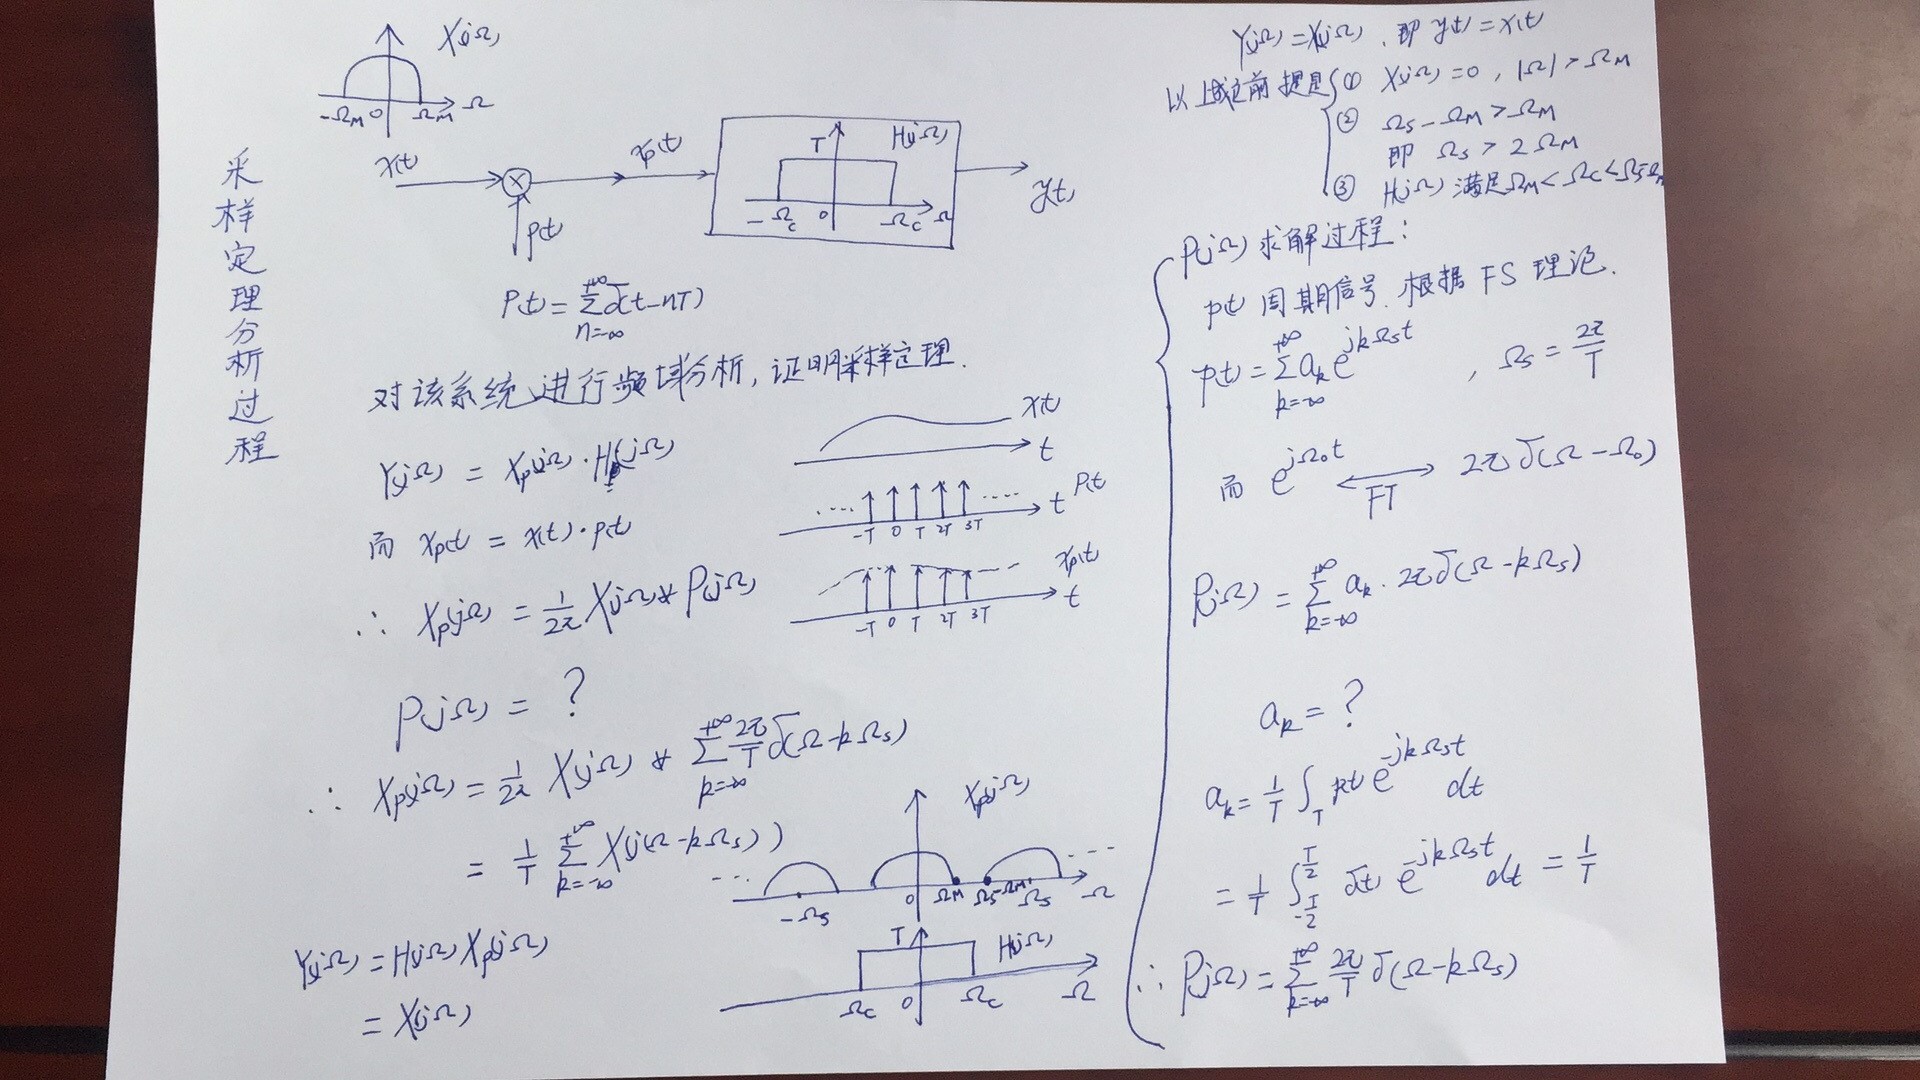 采样定理分析过程
X(jΩ)
-Ω_M 0 Ω_M Ω
x(t)
x_p(t)
p(t)
T H(jΩ)
-Ω_c 0 Ω_c Ω
y(t)
p(t) = Σ_{n=-∞}^{+∞} δ(t-nT)
对该系统进行频域分析，证明采样定理.
Y(jΩ) = X_p(jΩ)·H(jΩ)
而 x_p(t) = x(t)·p(t)
∴ X_p(jΩ) = 1/2π X(jΩ) * P(jΩ)
x(t)
t
.... .... t p(t)
-T 0 T 2T 3T
x_p(t)
t
-T 0 T 2T 3T
P(jΩ) = ?
∴ X_p(jΩ) = 1/2π X(jΩ) * Σ_{k=-∞}^{+∞} 2π/T δ(Ω-kΩ_s)
= 1/T Σ_{k=-∞}^{+∞} X(j(Ω-kΩ_s))
X_p(jΩ)
-Ω_s 0 Ω_M Ω_s-Ω_M Ω_s Ω
Y(jΩ) = H(jΩ) X_p(jΩ)
= X(jΩ)
T H(jΩ)
Ω_c 0 Ω_c Ω
Y(jΩ) = X(jΩ) . 即 y(t) = x(t)
以上成立前提是{ ① X(jΩ) = 0 , |Ω| > Ω_M
② Ω_s - Ω_M > Ω_M
即 Ω_s > 2Ω_M
③ H(jΩ) 满足 Ω_M < Ω_c < Ω_s-Ω_M
P(jΩ) 求解过程：
p(t) 周期信号. 根据 FS 理论.
p(t) = Σ_{k=-∞}^{+∞} a_k e^{jkΩ_s t} , Ω_s = 2π/T
而 e^{jΩ_0 t} ⟷ 2πδ(Ω-Ω_0)
FT
P(jΩ) = Σ_{k=-∞}^{+∞} a_k · 2πδ(Ω-kΩ_s)
a_k = ?
a_k = 1/T ∫_T p(t) e^{-jkΩ_s t} dt
= 1/T ∫_{-T/2}^{T/2} δ(t) e^{-jkΩ_s t} dt = 1/T
∴ P(jΩ) = Σ_{k=-∞}^{+∞} 2π/T δ(Ω-kΩ_s)